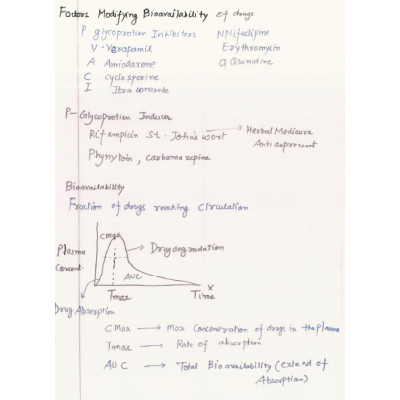 Factors Modifying Bioavailability of drugs
P glycoprotion Inhibitors N Nifedipine
V · Varapamil Erythromycin
A Amiodarone Q Quinidine
C cyclosporine
I Itraconazole
P- Glycoprotion Inducer
Rifampicin St. John's wort → Herbal Medicine
Antidepressent
Phynytoin, carbamazepine
Bioavailability
Fraction of drugs reaching Circulation
CMax
Plasma
Concent.
Drug degradation
AUC
Tmax
X
Time
Drug Absorption
CMax → Max Concentration of drugs in the plasma
Tmax → Rate of absorption
AUC → Total Bioavailability (extend of
Absorption)